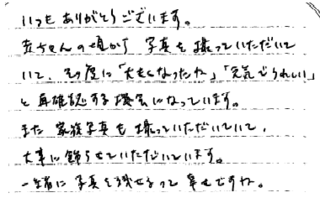 いつもありがとうございます。
赤ちゃんの頃から 写真を撮っていただいて
いて、その度に「大きくなったね」「元気でうれしい」
と再確認する機会になっています。
また 家族写真も撮っていただいていて、
大事に飾らせていただいています。
一緒に写真を残せるって 幸せですね。